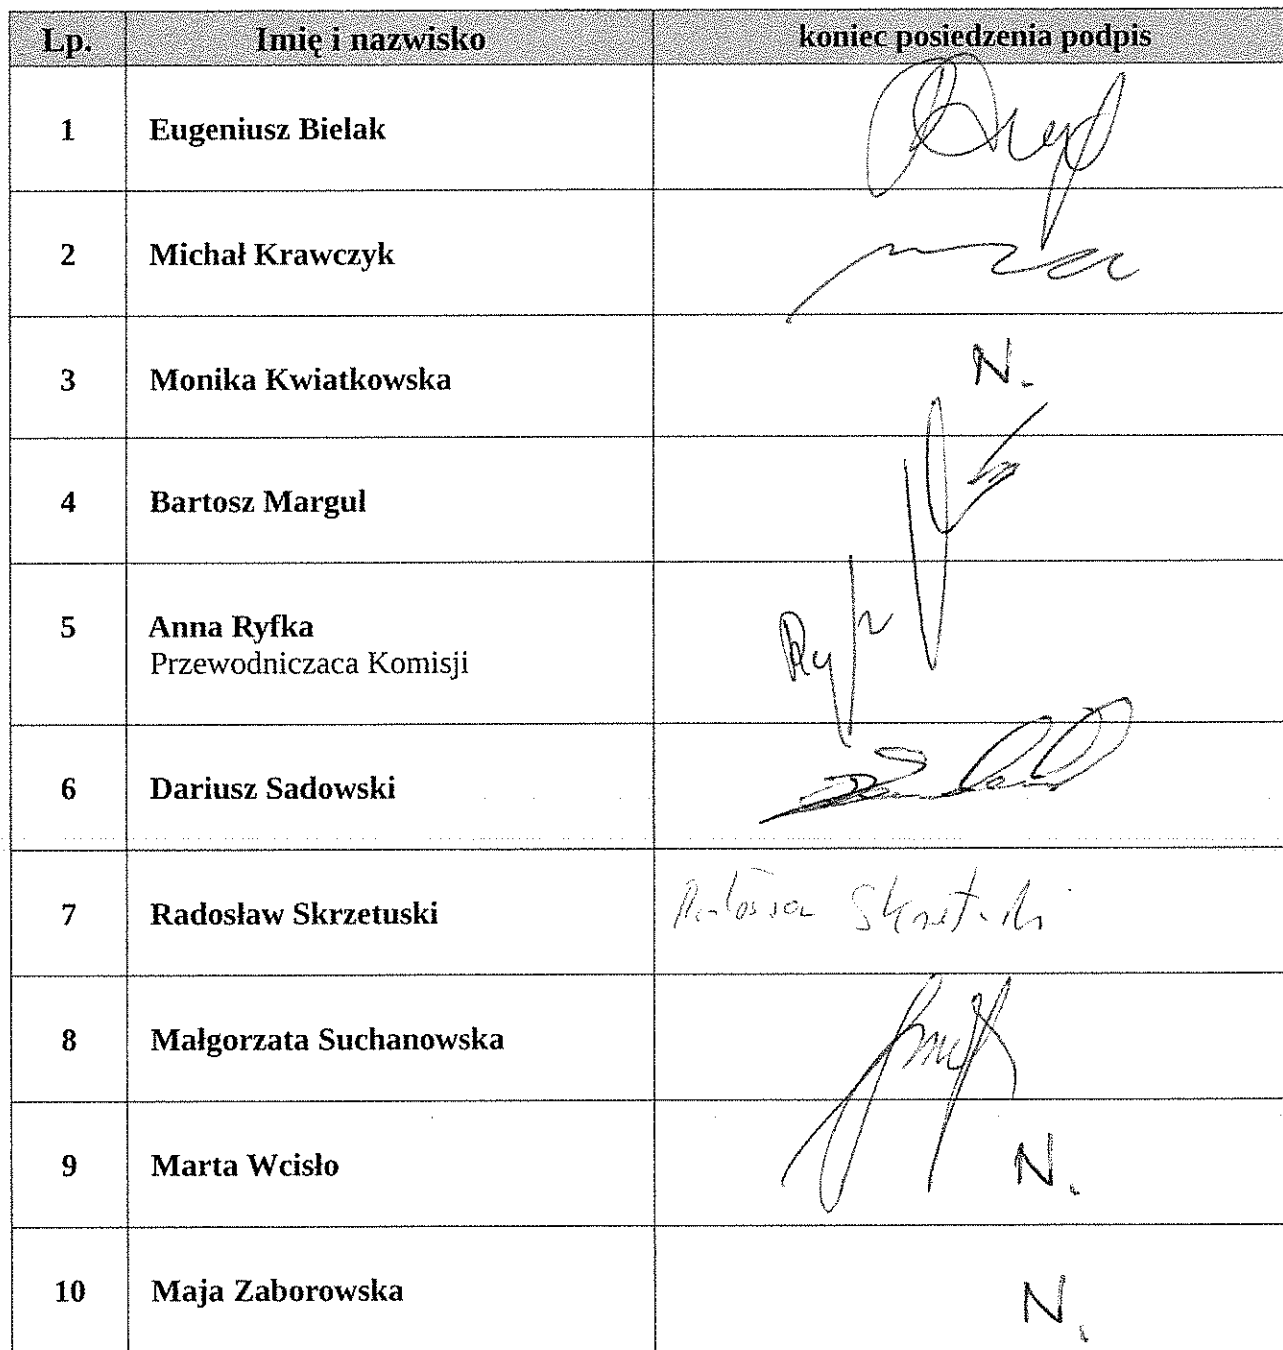 Lp. Imię i nazwisko koniec posiedzenia podpis
1 Eugeniusz Bielak
2 Michał Krawczyk
3 Monika Kwiatkowska N.
4 Bartosz Margul
5 Anna Ryfka
Przewodniczaca Komisji
6 Dariusz Sadowski
7 Radosław Skrzetuski
8 Małgorzata Suchanowska
9 Marta Wcisło N.
10 Maja Zaborowska N.